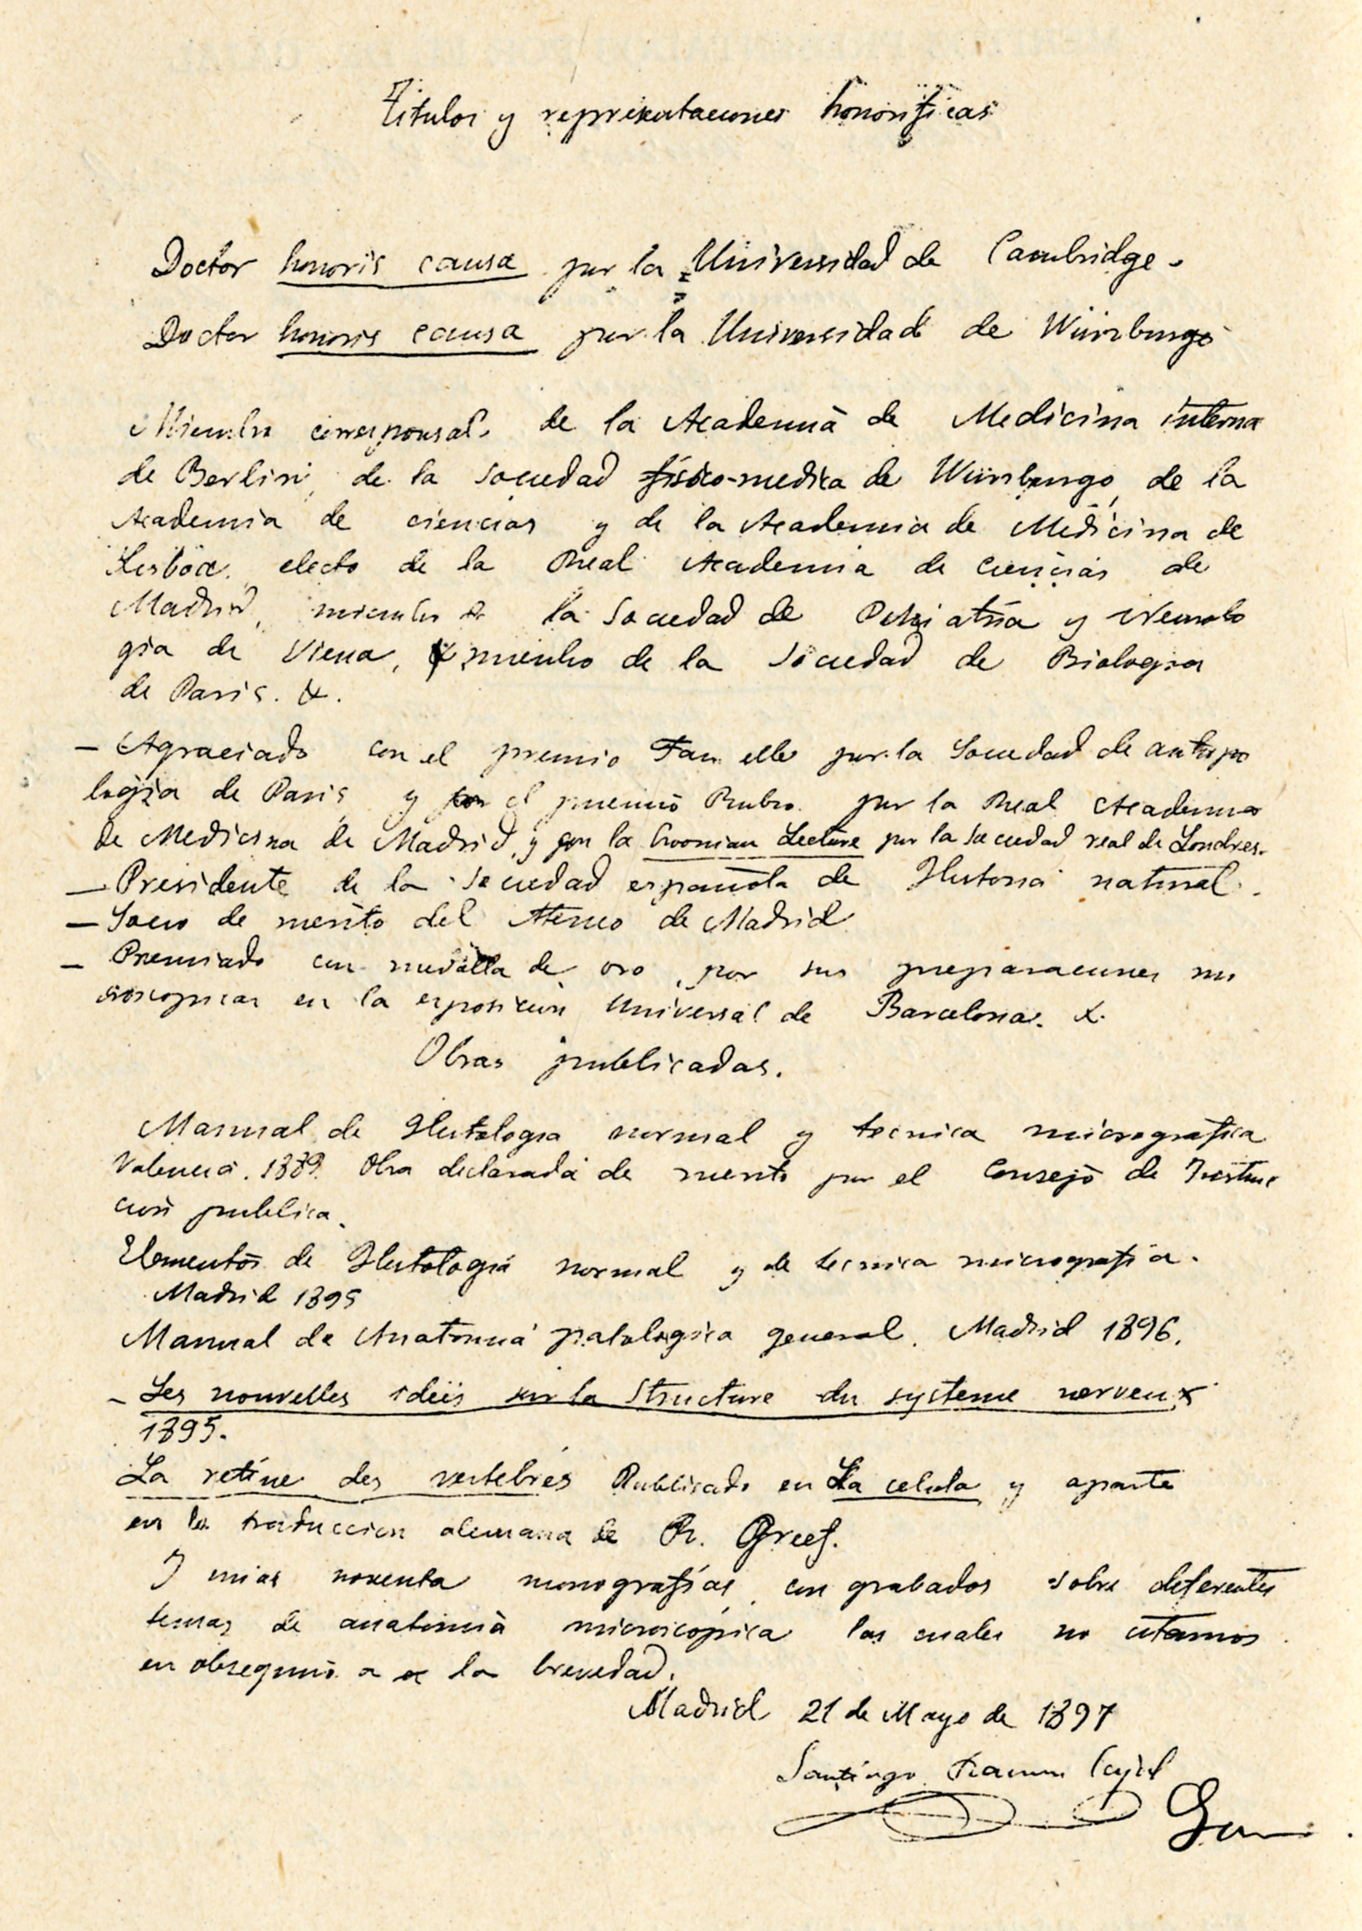 Titulos y representaciones honorificas
Doctor honoris causa por la Universidad de Cambridge.
Doctor honoris causa por la Universidad de Würzburgo
Miembro corresponsal de la Academia de Medicina interna
de Berlin, de la Sociedad físico-medica de Würzburgo, de la
Academia de ciencias y de la Academia de Medicina de
Lisboa, electo de la Real Academia de Ciencias de
Madrid, miembro de la Sociedad de Psiquiatría y Neurolo
gia de Viena, miembro de la Sociedad de Biologia
de Paris. &.
— Agraciado con el premio Fauvelle por la Sociedad de antropo
logia de Paris, y por el premio Rubio por la Real Academia
de Medicina de Madrid, y por la Croonian Lecture por la Sociedad real de Londres.
— Presidente de la Sociedad española de Historia natural.
— Socio de merito del Ateneo de Madrid
— Premiado con medalla de oro, por sus preparaciones mi
croscopicas en la exposicion Universal de Barcelona. &.
Obras publicadas.
Manual de Histologia normal y tecnica micrografica
Valencia. 1889. Obra declarada de merito por el Consejo de Instruc
cion publica.
Elementos de Histologia normal y de tecnica micrografia.
Madrid 1895
Manual de Anatomia patologica general. Madrid 1896.
- Les nouvelles idées sur la Structure du systeme nerveux
1895.
La retine des vertebrés Publicado en La celula y aparte
en la traduccion alemana de R. Greef.
Y mias noventa monografías con grabados sobre diferentes
temas de anatomia microscópica las cuales no citamos
en obsequio a la brevedad.
Madrid 21 de Mayo de 1897
Santiago Ramon Cajal